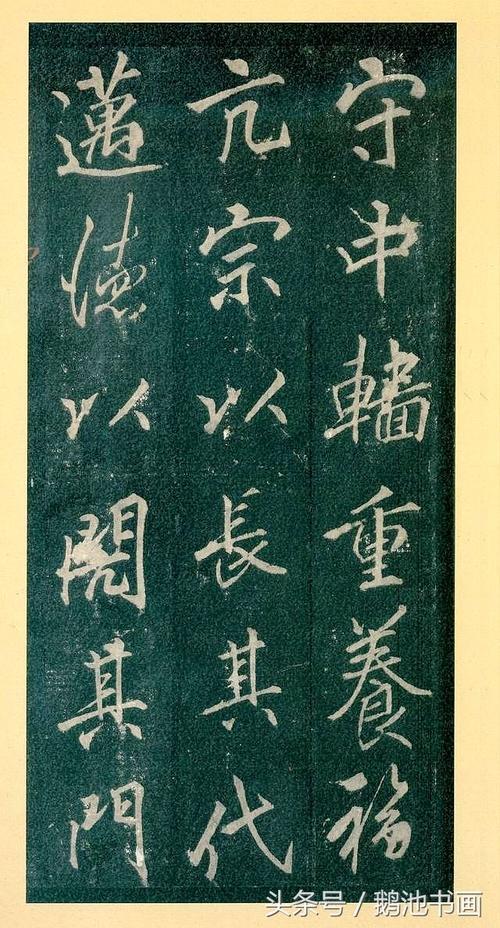 守中輜重養福
亢宗以長其代
邁德以閲其門
头条号 / 鹅池书画